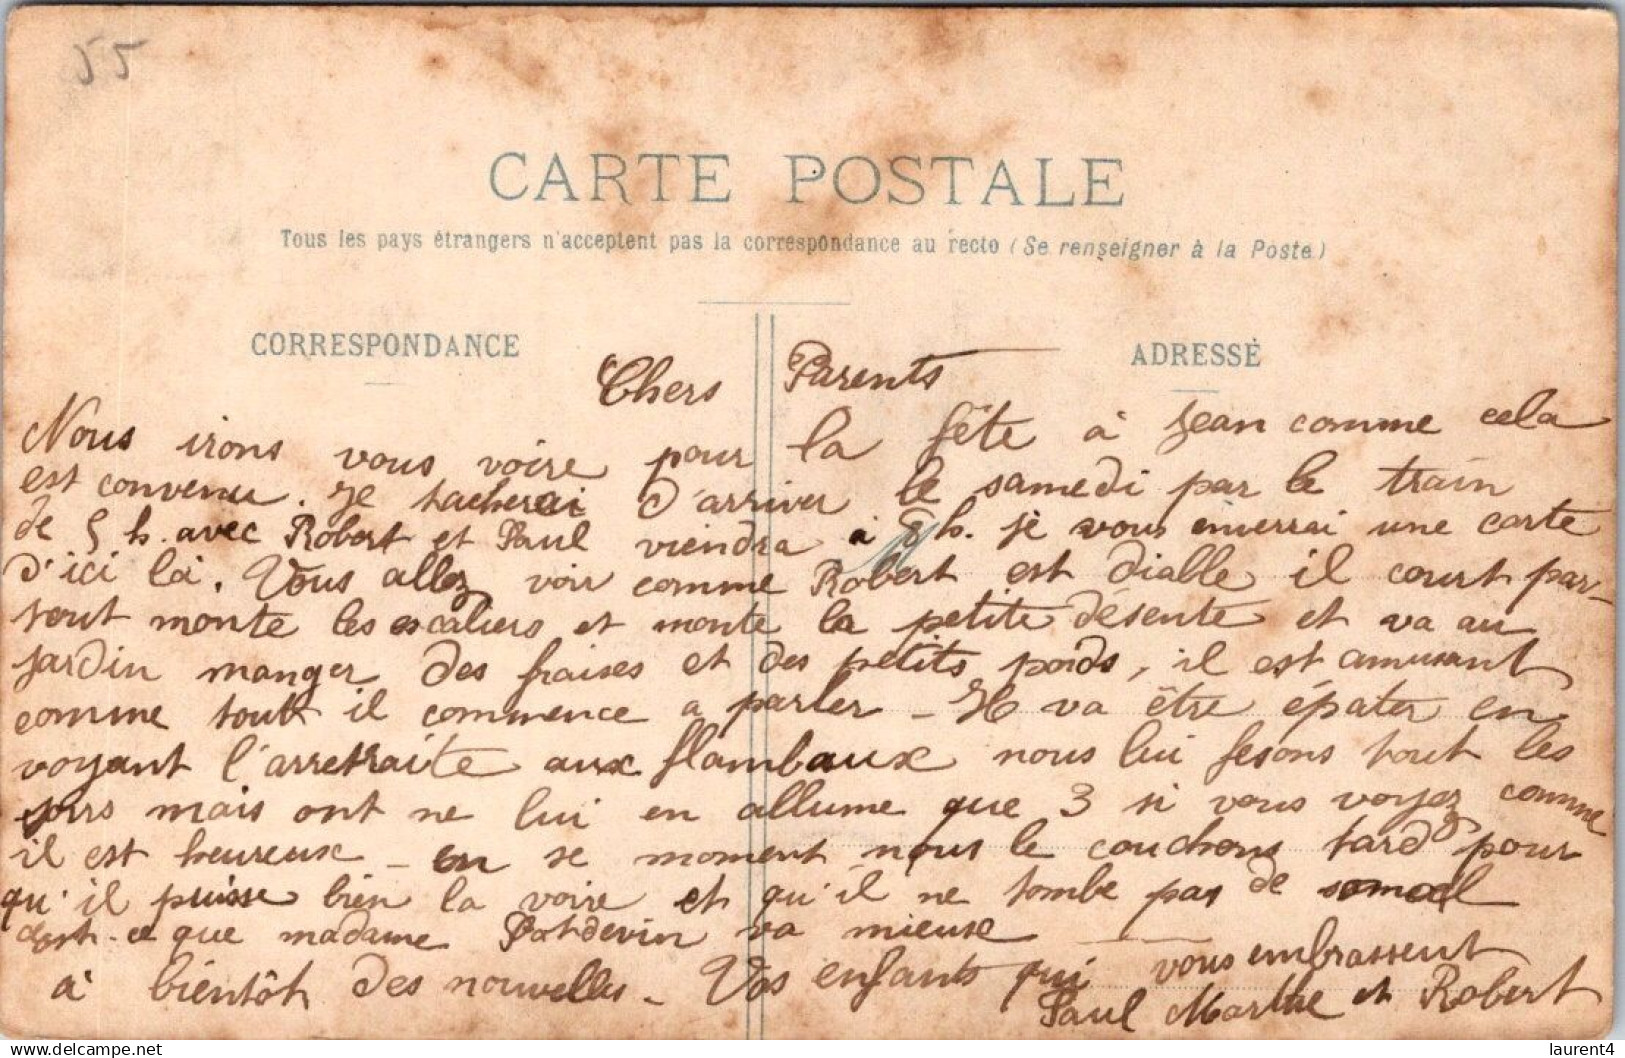 55
CARTE POSTALE
Tous les pays étrangers n'acceptent pas la correspondance au recto (Se renseigner à la Poste)
CORRESPONDANCE
ADRESSE
Chers Parents
Nous irons vous voire pour la fête à Jean comme cela
est convenu. Je tacherai d'arriver le samedi par le train
de 5 h. avec Robert et Paul viendra à 8 h. je vous enverrai une carte
d'ici là. Vous allez voir comme Robert est dialle il court par-
tout monte les escaliers et monte la petite désente et va au
jardin manger des fraises et des petits poids, il est amusant
comme tout il commence a parler - Il va être épater en
voyant l'arretraite aux flambaux nous lui fesons tout les
jours mais ont ne lui en allume que 3 si vous voyez comme
il est heureux - en se moment nous le couchons tard pour
qu'il puisse bien la voire et qu'il ne tombe pas de someil
est-ce que madame Potdevin va mieux
à bientôt des nouvelles - Vos enfants qui vous embrassent
Paul Marthe et Robert
laurent4